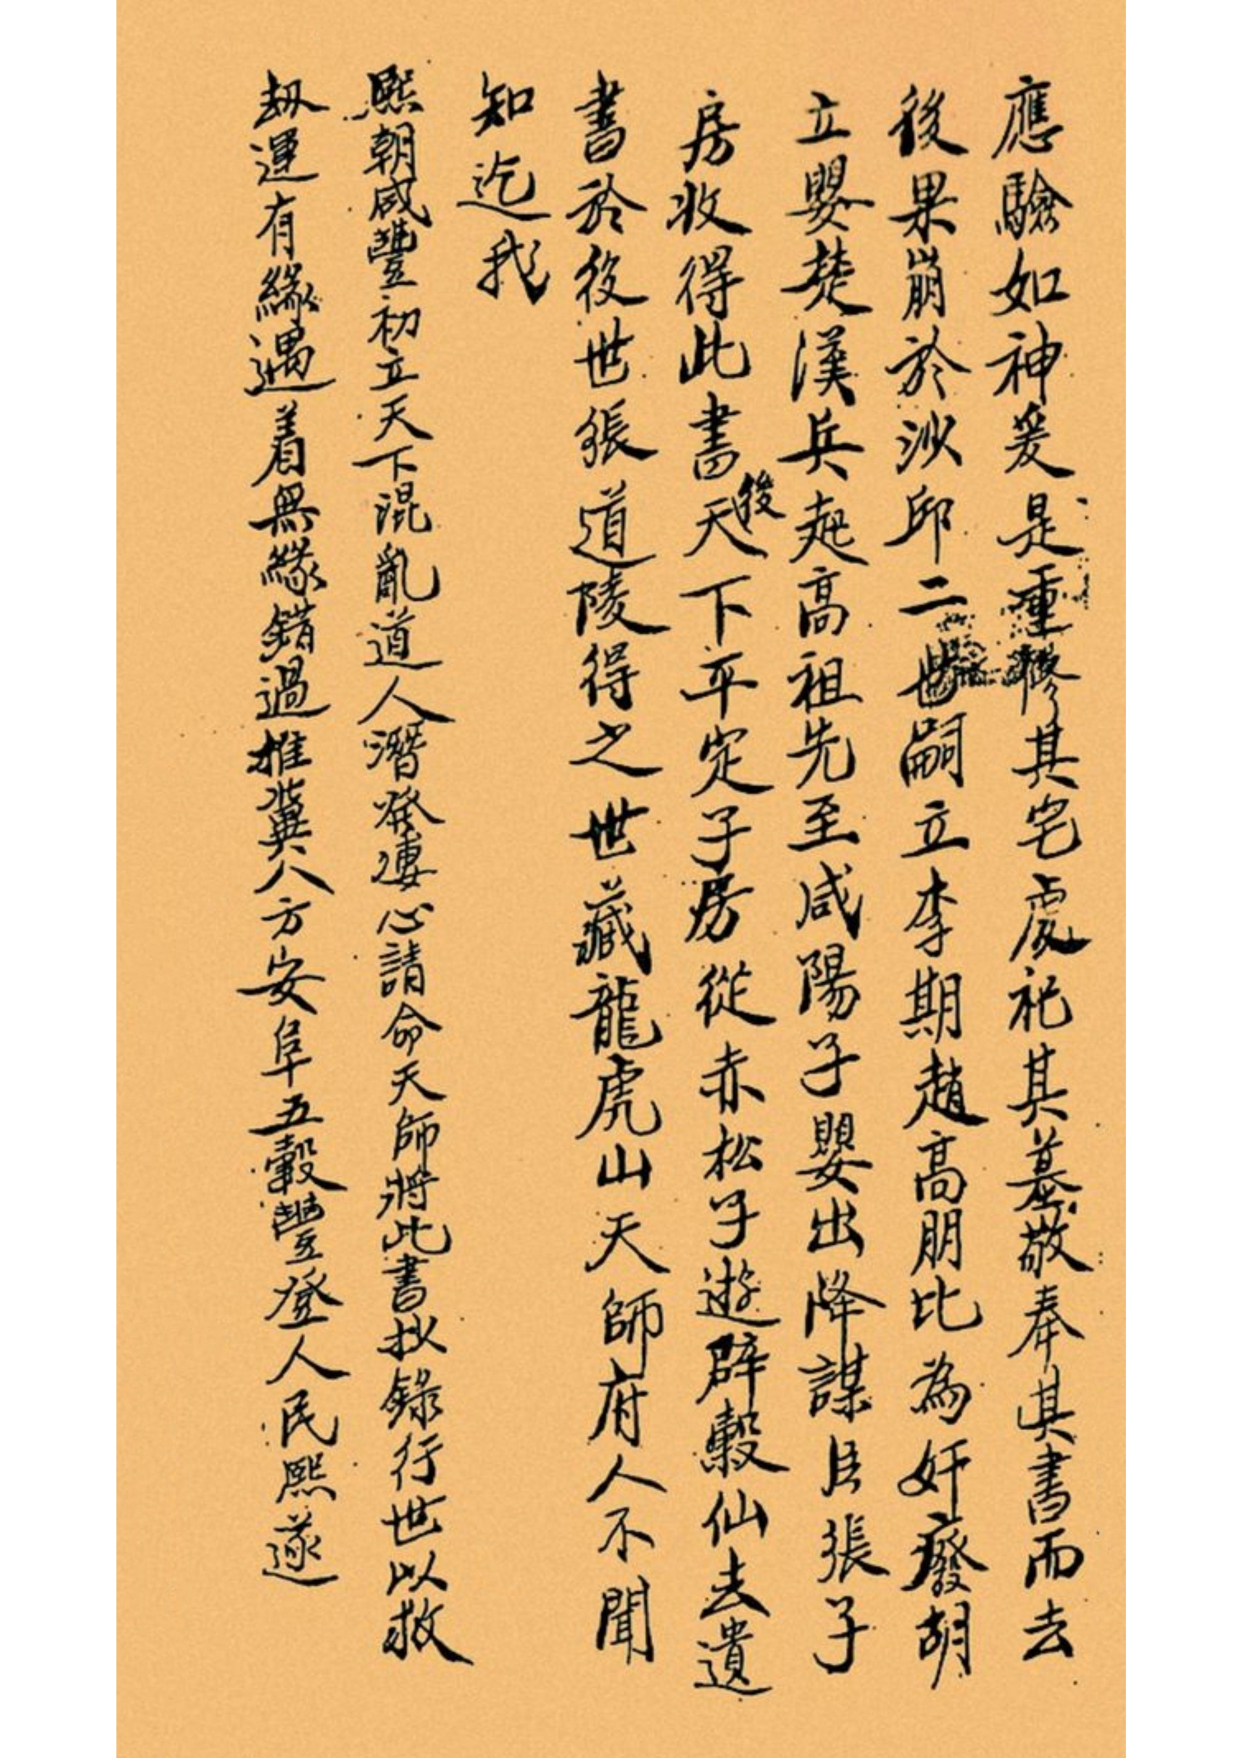 應驗如神爰是重修其宅處祀其墓敬奉其書而去
後果崩於沙邱二世嗣立李期趙高朋比為奸廢胡
立嬰楚漢兵起高祖先至咸陽子嬰出降謀臣張子
房收得此書後天下平定子房從赤松子遊辟穀仙去遺
書於後世張道陵得之世藏龍虎山天師府人不聞
知迄我
熙朝咸豐初立天下混亂道人潛發悽心請命天師將此書抄錄行世以救
劫運有緣遇着無緣錯過推冀八方安阜五穀豐登人民熙